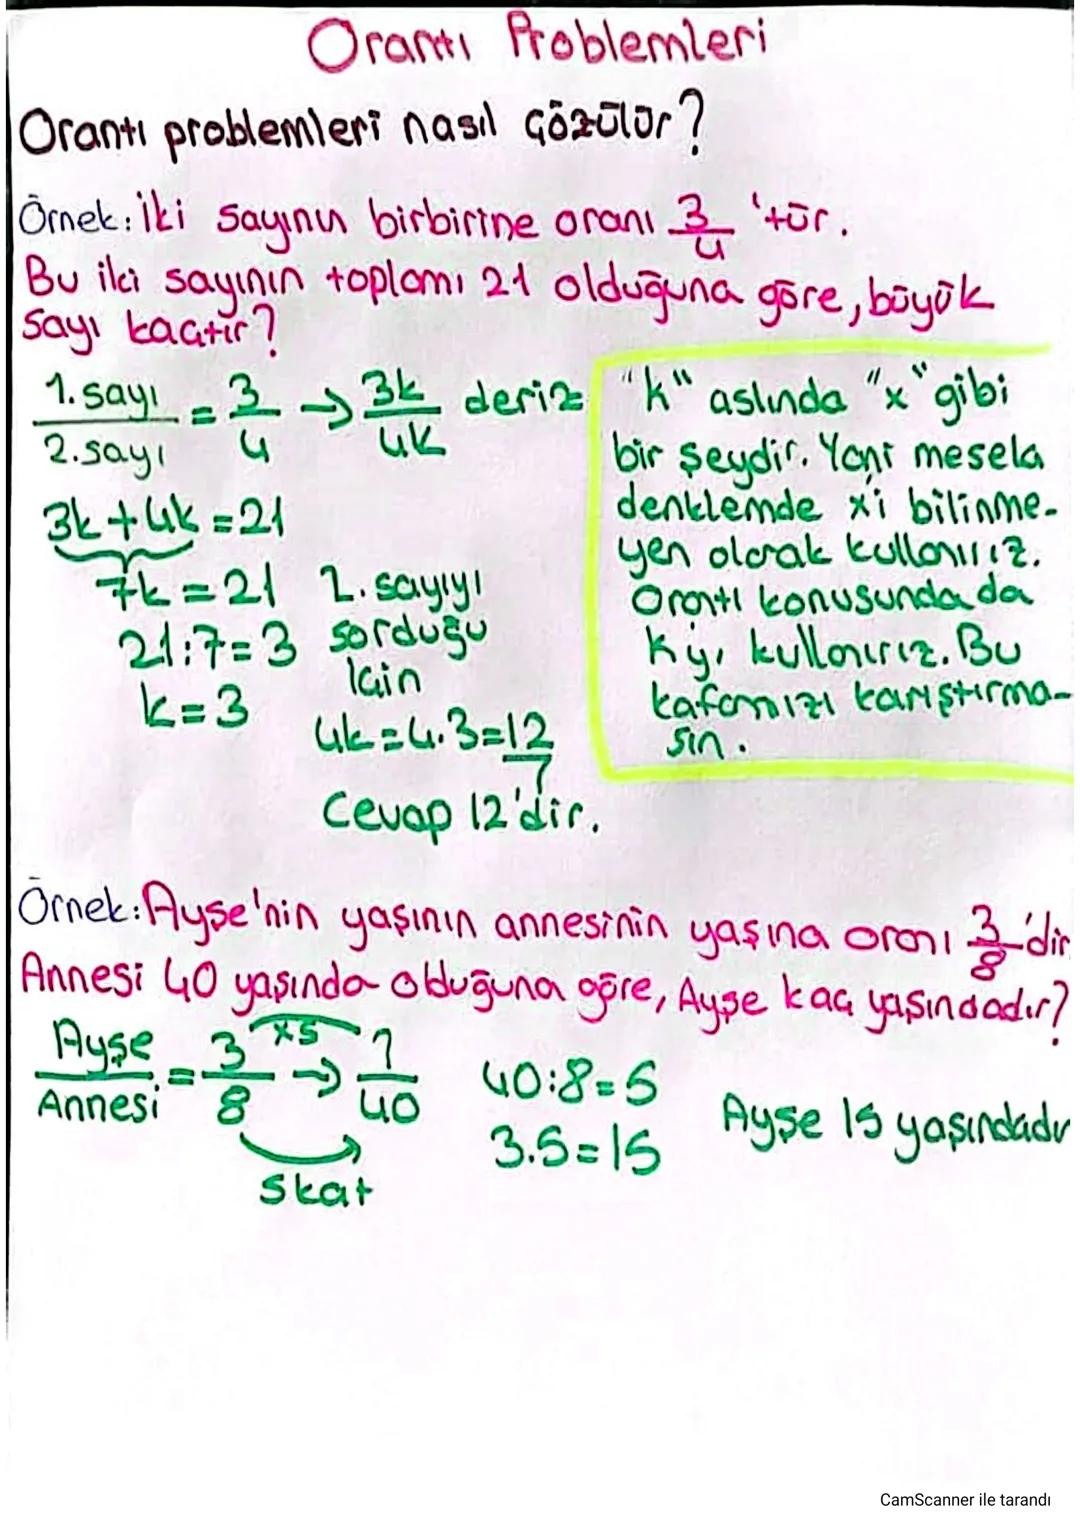 Orantı Problemleri
Orantı problemleri nasıl çözülür?
Örnek: İki sayının birbirine oranı 3/4 'tür.
Bu iki sayının toplamı 21 olduğuna göre, büyük
sayı kaçtır?
1. sayı / 2. sayı = 3/4 → 3k/4k deriz
3k + 4k = 21
7k = 21
21:7=3
k=3
2. sayıyı
sorduğu
için
4k=4.3=12
Cevap 12'dir.
"k" aslında "x" gibi
bir şeydir. Yani mesela
denklemde x'i bilinme-
yen olarak kullanırız.
Orantı konusunda da
K'yı kullanırız. Bu
kafamızı karıştırma-
sın.
Örnek: Ayşe'nin yaşının annesinin yaşına oranı 3/8'dir
Annesi 40 yaşında olduğuna göre, Ayşe kaç yaşındadır?
x5
Ayşe / Annesi = 3/8 → ?/40
5 kat
40:8=5
3.5=15
Ayşe 15 yaşındadır
CamScanner ile tarandı